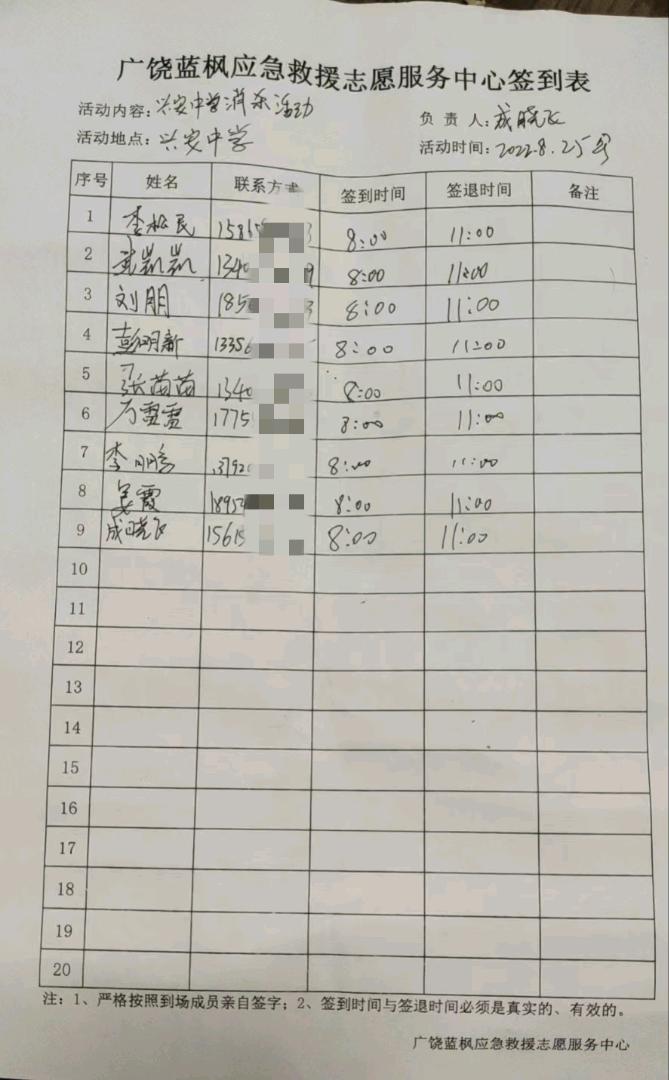 广饶蓝枫应急救援志愿服务中心签到表
活动内容：兴安中学消杀活动
负责人：成晓飞
活动地点：兴安中学
活动时间：2022.8.25号
序号 姓名 联系方式 签到时间 签退时间 备注
1 李松民 15865 3 8:00 11:00
2 武凯凯 1340 9 8:00 11:00
3 刘朋 185 3 8:00 11:00
4 彭明新 1335 8:00 11:00
5 张苗苗 1340 8:00 11:00
6 万雷雷 1775 8:00 11:00
7 李刚鹏 13792 8:00 11:00
8 姜霞 1895 8:00 11:00
9 成晓飞 15615 8:00 11:00
10
11
12
13
14
15
16
17
18
19
20
注：1、严格按照到场成员亲自签字；2、签到时间与签退时间必须是真实的、有效的。
广饶蓝枫应急救援志愿服务中心